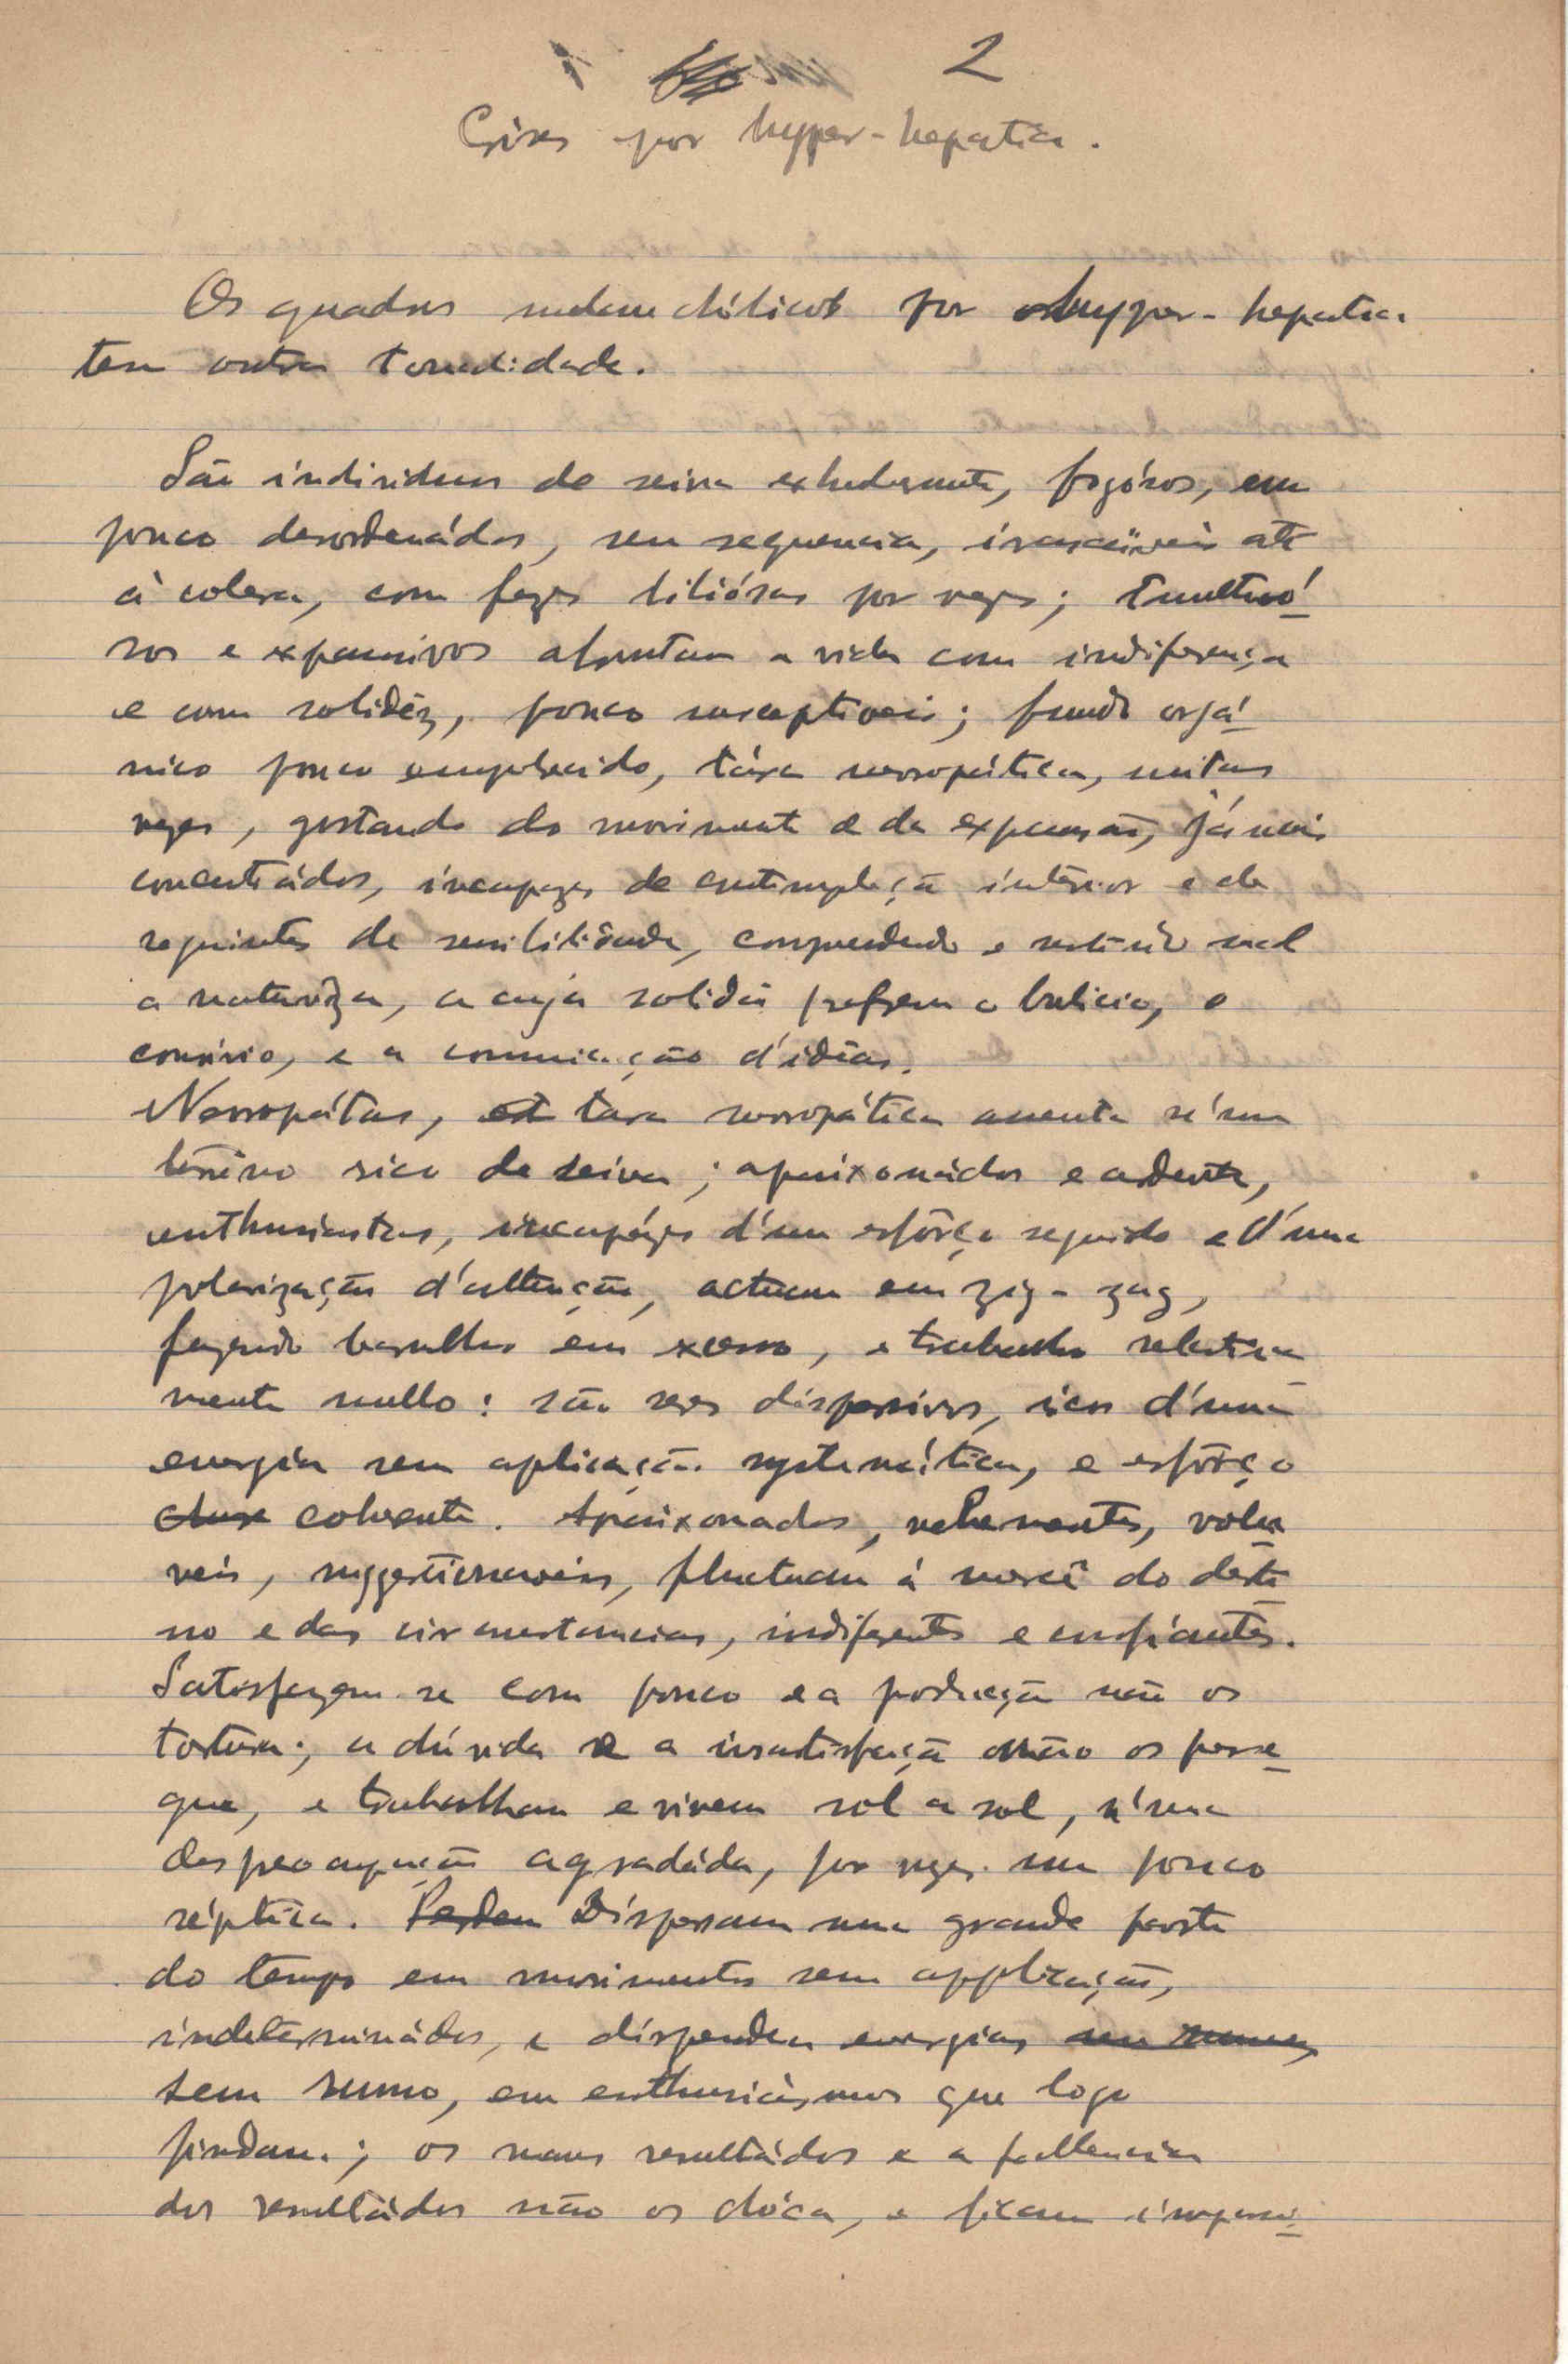 2
Crises por hyper-hepatica.
Os quadros melancólicos por hyper-hepatica
tem outra tonalidade.
São individuos de seiva exhuberante, fogósos, um
pouco desordenádos, sem sequencia, irascíveis até
à colera, com fazes biliósas por vezes; tumultuó-
sos e expansivos afrontam a vida com indiferença
e com solidêz, pouco susceptiveis; fundo orgâ-
nico pouco empobrecido, tára nevropática, muitas
vezes, gostando do movimento e da expansão, jámais
concentrádos, incapazes de contemplação interior e de
requintes de sensibilidade, comprendendo e sentindo mal
a natureza, a cuja solidão preferem o bulicio, o
convivio, e a comunicação d'idêas.
Nevropátas, tara nevropática assenta n'um
terreno rico de seiva; apaixonádos e ardentes,
enthusiastas, incapázes d'um esforço seguido e d'uma
polarização d'attenção, actuam em zig-zag,
fazendo barulho em excesso, e trabalho relativa
mente nullo: são seres dispersivos, ricos d'uma
energia sem aplicação systemática, e esfôrço
coherente. Apaixonados, vehementes, volu
veis, suggestionaveis, fluctuam á mercê do desti
no e das circumstancias, indiferentes e confiantes.
Satisfazem-se com pouco e a producção não os
tortura; a dúvida e a insatisfação não os perse-
gue, e trabalham e vivem sol a sol, n'uma
despreocupação agradáda, por vezes um pouco
séptica. Perdem Dispersam uma grande parte
do tempo em movimentos sem applicação,
indeterminádos, e dispendem energias sem rumo,
sem rumo, em enthusiásmos que logo
findam; os maus resultádos e a fallencia
dos resultádos não os dóca, e ficam impassi-